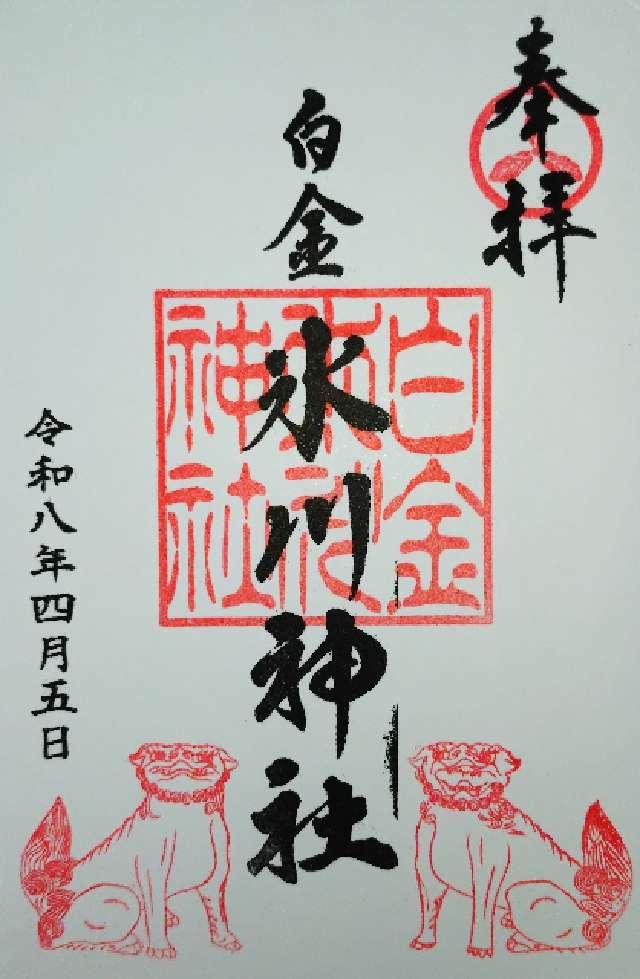 奉拝
白金
氷川神社
白金
氷川
神社
令和八年四月五日